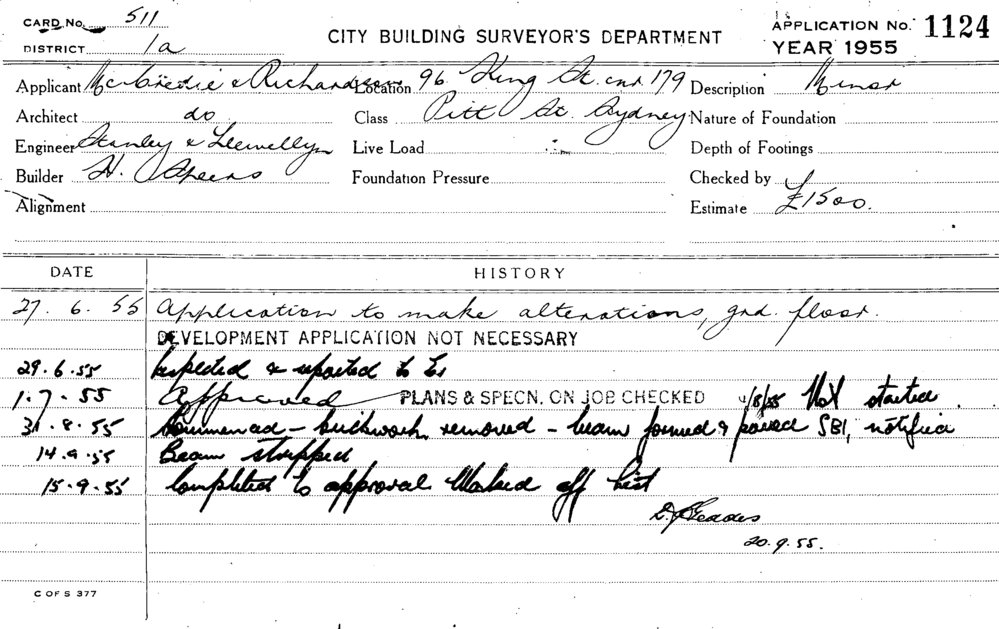 CARD No. 511
DISTRICT 1a
CITY BUILDING SURVEYOR'S DEPARTMENT
APPLICATION No. 1124
YEAR 1955
Applicant McCredie & Richardson Location 96 King St. cnr 179 Description Minor
Architect do Class Pitt St. Sydney Nature of Foundation
Engineer Stanley & Llewellyn Live Load Depth of Footings
Builder H. Speers Foundation Pressure Checked by
Alignment Estimate £1500.
DATE HISTORY
27. 6. 55 Application to make alterations, grd. floor.
DEVELOPMENT APPLICATION NOT NECESSARY
29.6.55 Inspected & reported to
1.7.55 Approved PLANS & SPECN. ON JOB CHECKED 4/8/55 Not started.
31.8.55 Commenced - brickwork removed - beam formed & poured SBI, notified
14.9.55 Beam stripped
15.9.55 Completed to approval. Marked off list
20.9.55.
C OF S 377